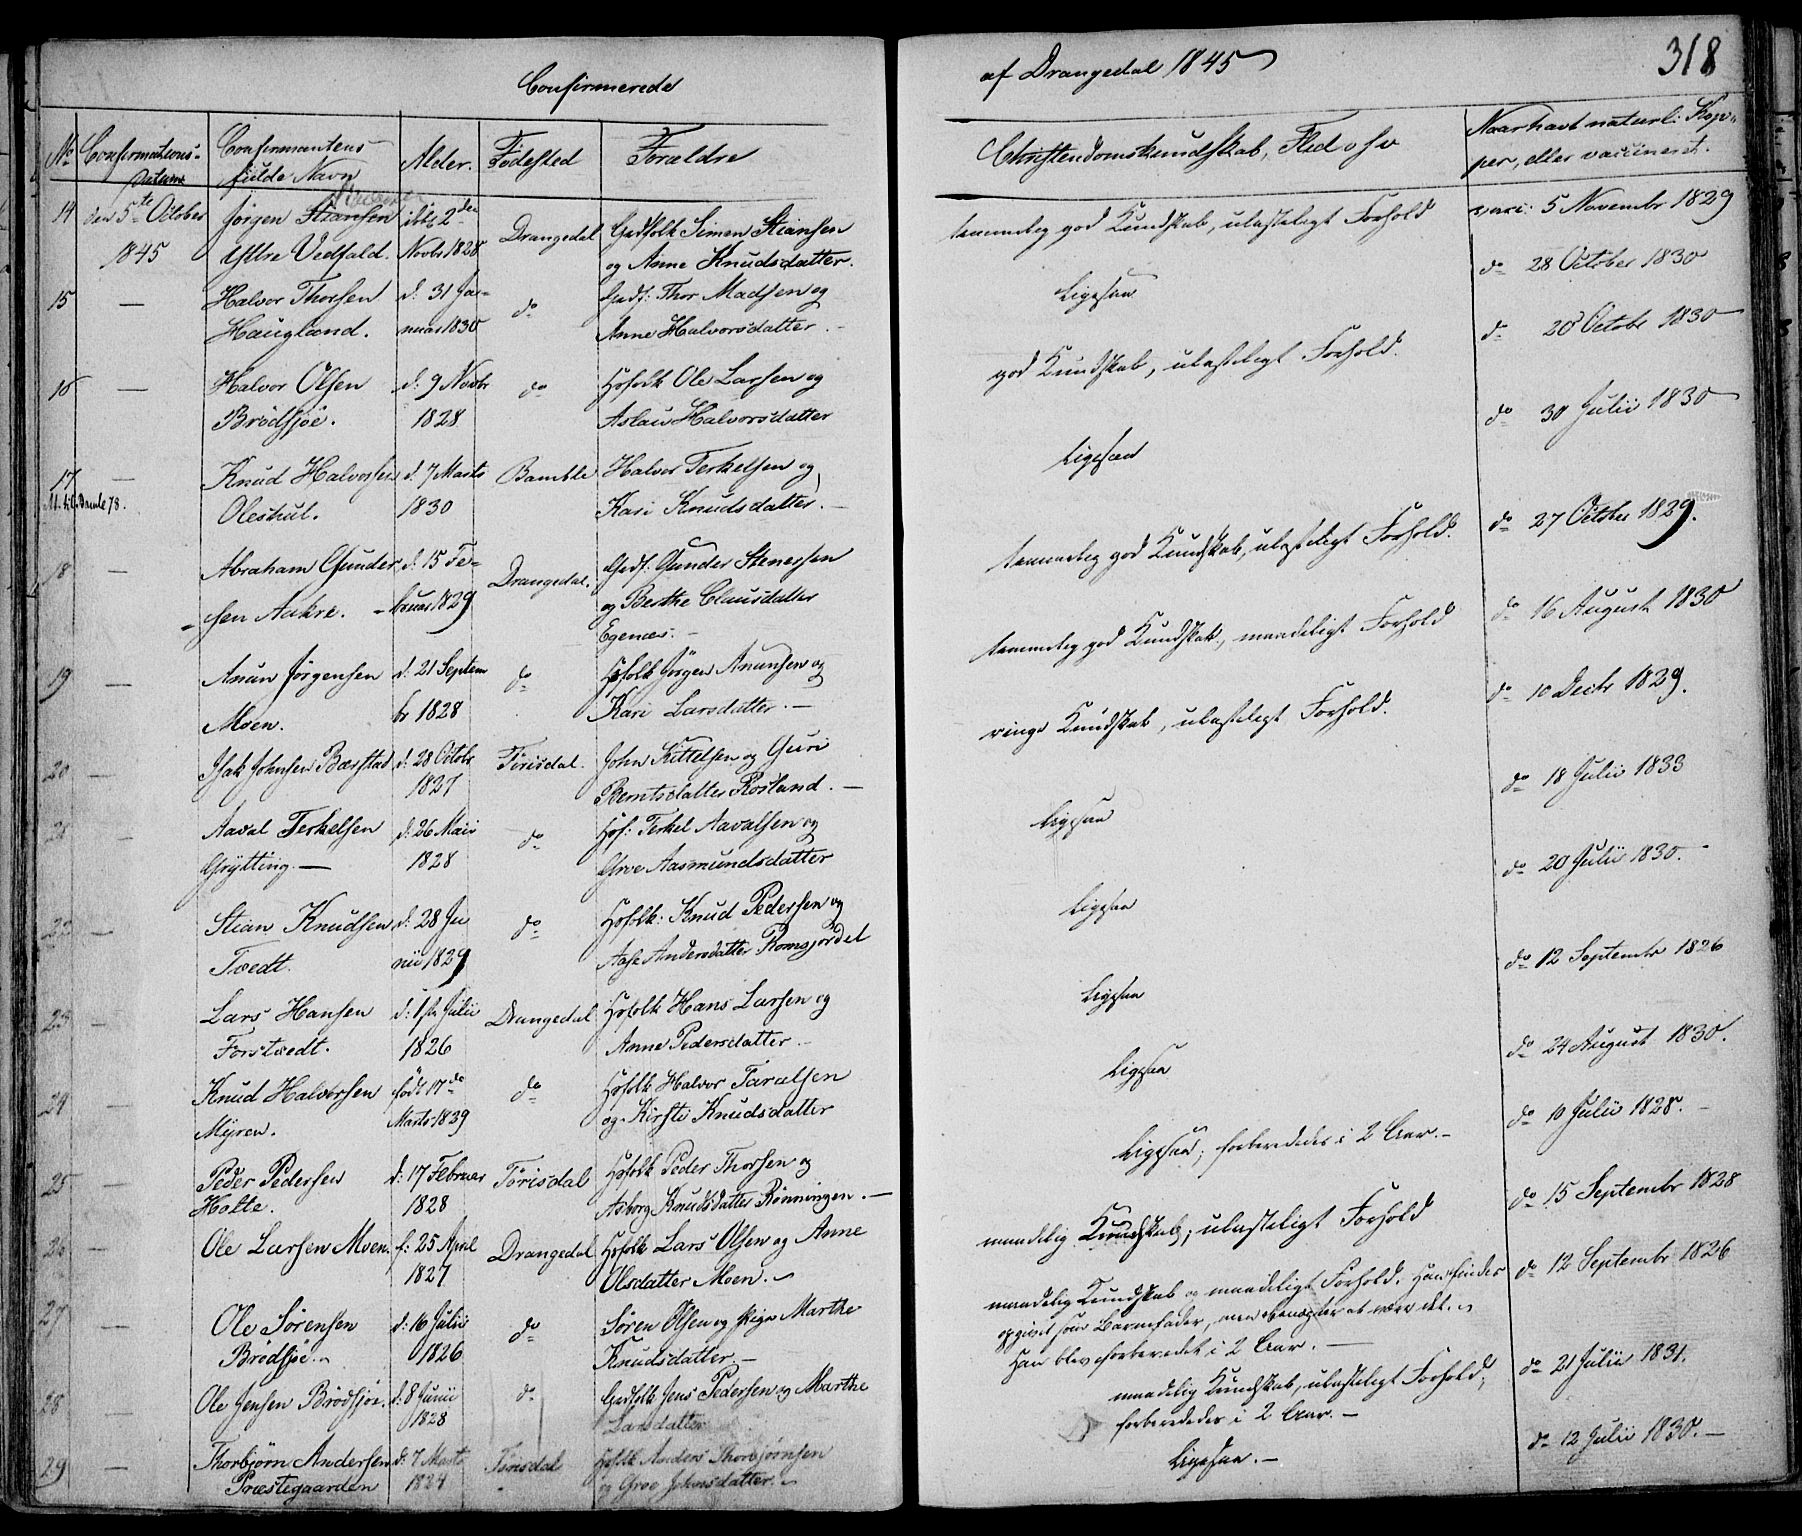 Confirmerede
af Drangedal 1845
318
No Confirmations-Datum
Confirmantens fulde Navn
Alder.
Fødested
Forældre
Christendomskundskab, Flid osv
Naar havt naturl: Kop-
per, eller vaccineret.
14 den 5te October 1845
Jørgen Stiansen
Ytre Vedfald.
2den Novbr 1828
Drangedal
Gadfolk Simon Stiansen
og Anne Knudsdatter.
temmelig god Kundskab, ulasteligt Forhold
vacc: 5 Novembr 1829
15 —
Halvor Thorsen
Haugland.
d: 31 Ja-
nuar 1830
do
Gadf: Thor Madsen og
Anne Halvorsdatter. -
Ligesaa
do 28 October 1830
16 —
Halvor Olsen
Brødsjøe.
d: 9 Novbr
1828
do
Hosfolk Ole Larsen og
Aslau Halvorsdatter
god Kundskab, ulasteligt Forhold.
do 20 Octobr 1830
17 —
Knud Halvorsen
Oleshul.
d. 7 Marts
1830
Bamble
Halvor Terkelsen og
Kari Knudsdatter. -
Ligesaa
do 30 Julii 1830
18 —
Abraham Gunder-
sen Aakre.
d: 15 Fe-
bruar 1829
Drangedal.
Gadf: Gunder Stenersen
og Berthe Clausdatter
Egenæs. -
temmelig god Kundskab, ulasteligt Forhold.
do 27 October 1829.
19 —
Anun Jørgensen
Moen.
d: 21 Septem
br 1828
do
Hosfolk Jørgen Anunsen og
Kari Larsdatter. —
temmelig god Kundskab, maadeligt Forhold
do 16 August 1830
20 —
Isak Johnsen Bærstad
d: 28 Octobr
1827
Tørisdal.
John Kittelsen og Guri
Berntsdatter Rosland. —
ringe Kundskab, ulasteligt Forhold.
do 10 Decbr 1829.
21 —
Aaval Terkelsen
Grytting. —
d: 26 Maii
1828
do
Hosf: Terkel Aavalsen og
Groe Aasmundsdatter
Ligesaa
do 18 Julii 1833
22 —
Stian Knudsen
Tvedt.
d: 28 Ju
nii 1829
do
Hosfolk: Knud Pedersen og
Aase Andersdatter Romsjordet
Ligesaa
do 20 Julii 1830. -
23 —
Lars Hansen
Forstvedt.
d: 1ste Julii
1826
Drangedal
Hosfolk Hans Larsen og
Anne Pedersdatter. -
Ligesaa
do 12 Septembr 1826
24 —
Knud Halvorsen
Myren.
født 17de
Marts 1839
do
Hosfolk Halvor Taralsen
og Kirsti Knudsdatter
Ligesaa
do 24 August 1830.
25 —
Peder Pedersen
Holte.
d: 17 Februar
1828
Tørisdal
Hosfolk Peder Thorsen og
Asborg Knudsdatter Rønningen. —
Ligesaa; forberededes i 2 Aar. -
do 10 Julii 1828. -
26 —
Ole Larsen Moen.
f: 25 April
1827
Drangedal
Hosfolk Lars Olsen og Anne
Olsdatter Moen. -
maadelig Kundskab; ulasteligt Forhold
do 15 Septembr 1828
27 —
Ole Sørensen
Brødsjøe. -
d: 16 Julii
1826
do
Søren Olsen og Pige Marthe
Knudsdatter -
maadelig Kundskab og maadeligt Forhold. Han findes
opgivet som Barnefader, men benægter at være det.
Han blev forberedet i 2 Aar. —
do 12 Septembr 1826
28 —
Ole Jensen Brødsjøe.
d: 8 Junii
1828
do
Gadfolk Jens Pedersen og Marthe
Larsdatter
maadelig Kundskab, ulasteligt Forhold;
forberededes i 2 Aar. —
do 21 Julii 1831.
29 —
Thorbjørn Andersen
Præstegaarden
d: 7 Marts
1824
Tørisdal
Hosfolk Anders Thorbjørnsen
og Groe Johnsdatter. -
Ligesaa. -
do 12 Julii 1830. —